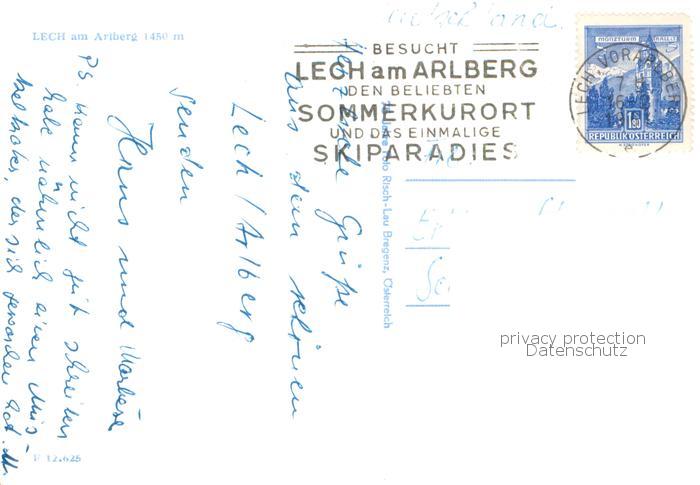 LECH am Arlberg 1450 m
BESUCHT
LECH am ARLBERG
DEN BELIEBTEN
SOMMERKURORT
UND DAS EINMALIGE
SKIPARADIES
MÜNZTURM HALL i.T.
1.80
REPUBLIK ÖSTERREICH
LECH, VORARLBERG
Grüße
aus dem schönen
Lech / Arlberg
senden
Hans und
P.S. kann nicht gut schreiben
habe nämlich einen
der sich geworden hat.
Risch-Lau Bregenz, Österreich
F 12.625
privacy protection
Datenschutz